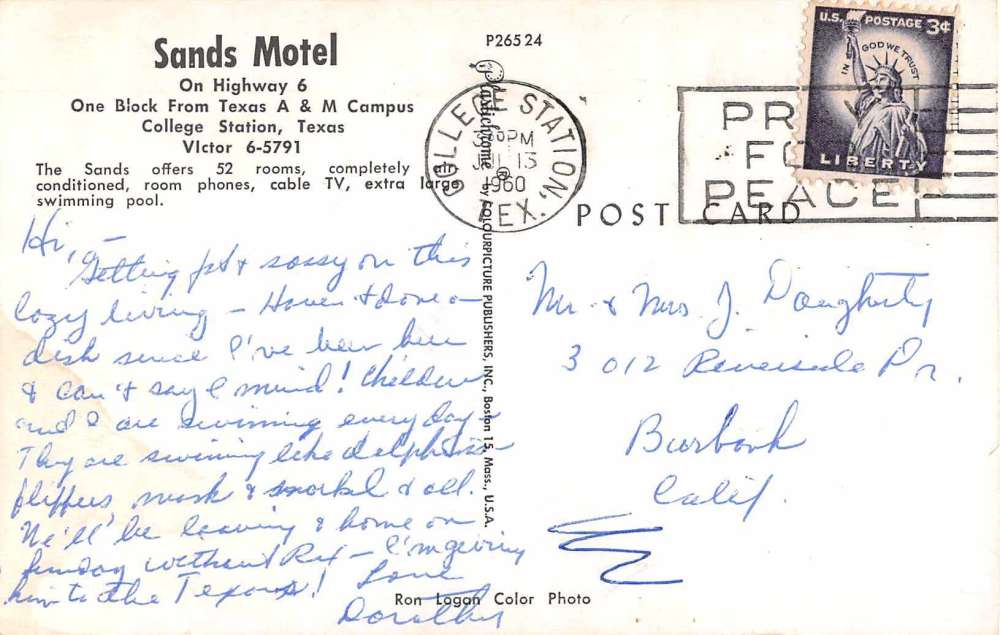 Sands Motel
On Highway 6
One Block From Texas A & M Campus
College Station, Texas
VIctor 6-5791
The Sands offers 52 rooms, completely air-
conditioned, room phones, cable TV, extra large
swimming pool.
P26524
Plastichrome ® by COLOURPICTURE PUBLISHERS, INC., Boston 15, Mass., U.S.A.
COLLEGE STATION,
PM
JUL 13
1960
TEX.
PRAY
FOR
PEACE
U.S. POSTAGE 3¢
IN GOD WE TRUST
LIBERTY
POST CARD
Hi,
Getting fat & sassy on this
lazy living – Haven't done a
dish since I've been here
& can't say I mind! Children
and I are swimming every day –
They are swimming like dolphins
flippers, mask & snorkel & all.
We'll be leaving & home on
Sunday without Rex – I'm giving
him to the Texans!
Love
Dorothy
Mr. & Mrs J. Daugherty
3012 Riverside Dr.
Burbank
Calif.
Ron Logan Color Photo